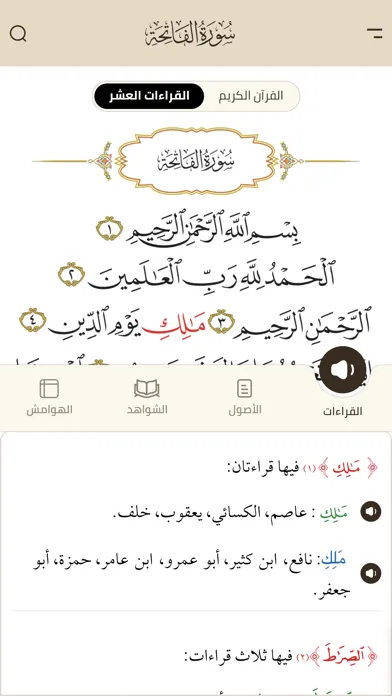 سُورَةُ الفَاتِحَةِ
القرآن الكريم
القراءات العشر
سُورَةُ الفَاتِحَةِ
بِسْمِ اللَّهِ الرَّحْمَٰنِ الرَّحِيمِ ١
الْحَمْدُ لِلَّهِ رَبِّ الْعَالَمِينَ ٢
الرَّحْمَٰنِ الرَّحِيمِ ٣ مَٰلِكِ يَوْمِ الدِّينِ ٤
القراءات
الأصول
الشواهد
الهوامش
﴿مَٰلِكِ﴾(١) فيها قراءتان:
مَٰلِكِ : عاصم، الكسائي، يعقوب، خلف.
مَلِكِ: نافع، ابن كثير، أبو عمرو، ابن عامر، حمزة، أبو
جعفر.
﴿الصِّرَٰطَ﴾(٢) فيها ثلاث قراءات: